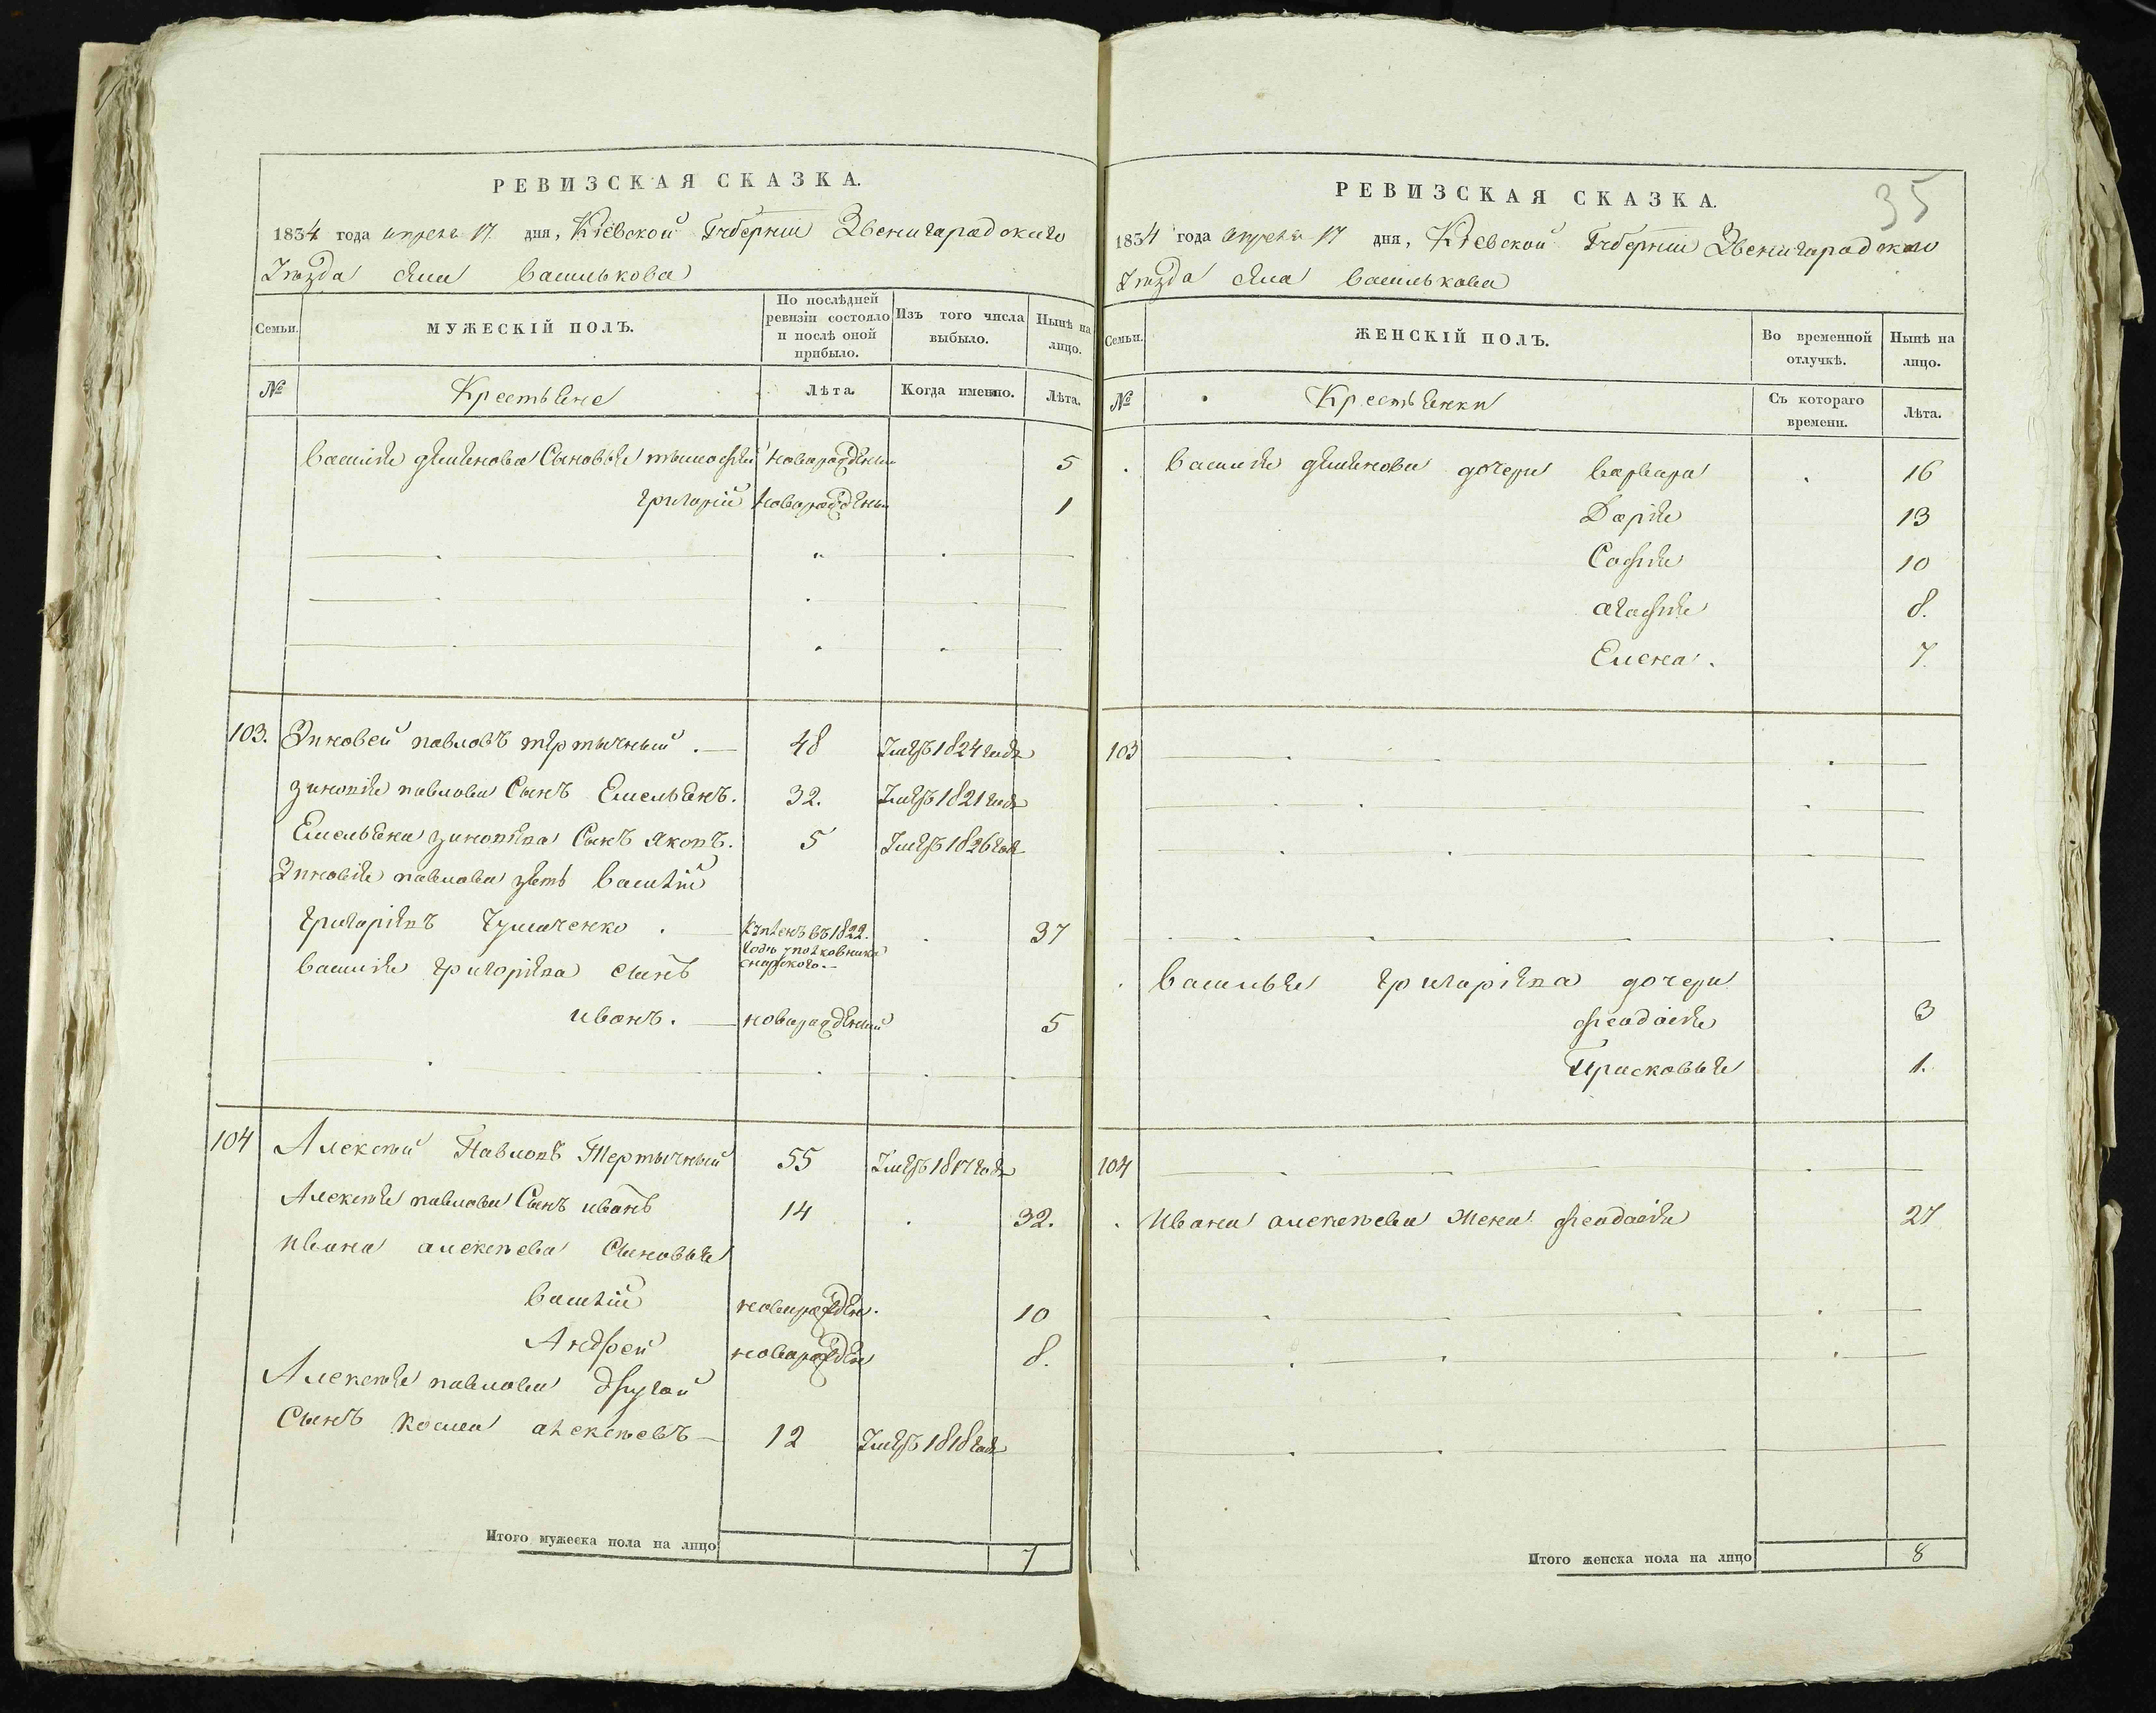 РЕВИЗСКАЯ СКАЗКА.
1834 года апреля 17 дня, Кіевской Губерніи Звенигарадскаго
Уѣзда Села Василькова
Семьи.
МУЖЕСКІЙ ПОЛЪ.
По послѣдней ревизіи состояло и послѣ оной прибыло.
Изъ того числа выбыло.
Нынѣ на лицо.
№
Крестьяне
Лѣта.
Когда именно.
Лѣта.
Василія Сыновья новарожденый 5
григорій новарожденый 1
103. Зиновей павловъ тертычный 48 Умеръ 1824 года
зиновія павлова Сынъ Емельянъ. 32. Умеръ 1821 года
Емельяна Сынъ Яковъ. 5 Умеръ 1826 года
Зиновія павлова зять Василій
григоріевъ Чумаченко 37
въ 1822.
полковника
Василія григоріева сынъ
иванъ. новарожденый 5
104 Алексѣй Павловъ Тертычный 55 Умеръ 1817 года
Алексѣя павлова Сынъ иванъ 14 32.
ивана алексѣева Сыновья
василій новарожден. 10
Андрей новарожден 8.
Алексѣя павлова другой
Сынъ Косма алексѣевъ 12 Умеръ 1818 года
Итого мужеска пола на лицо 7
35
РЕВИЗСКАЯ СКАЗКА.
1834 года апреля 17 дня, Кіевской Губерніи Звенигарадскаго
Уѣзда Села Василькова
Семьи.
ЖЕНСКІЙ ПОЛЪ.
Во временной отлучкѣ.
Нынѣ на лицо.
№
Крестьянки
Съ котораго времени.
Лѣта.
Василія дочери варвара 16
Дарія 13
Софія 10
агафія 8.
Елена. 7.
103
Василья григоріева дочери
феодосія 3
Прасковья 1.
104
Ивана алексѣева жена феодосія 27
Итого женска пола на лицо 8